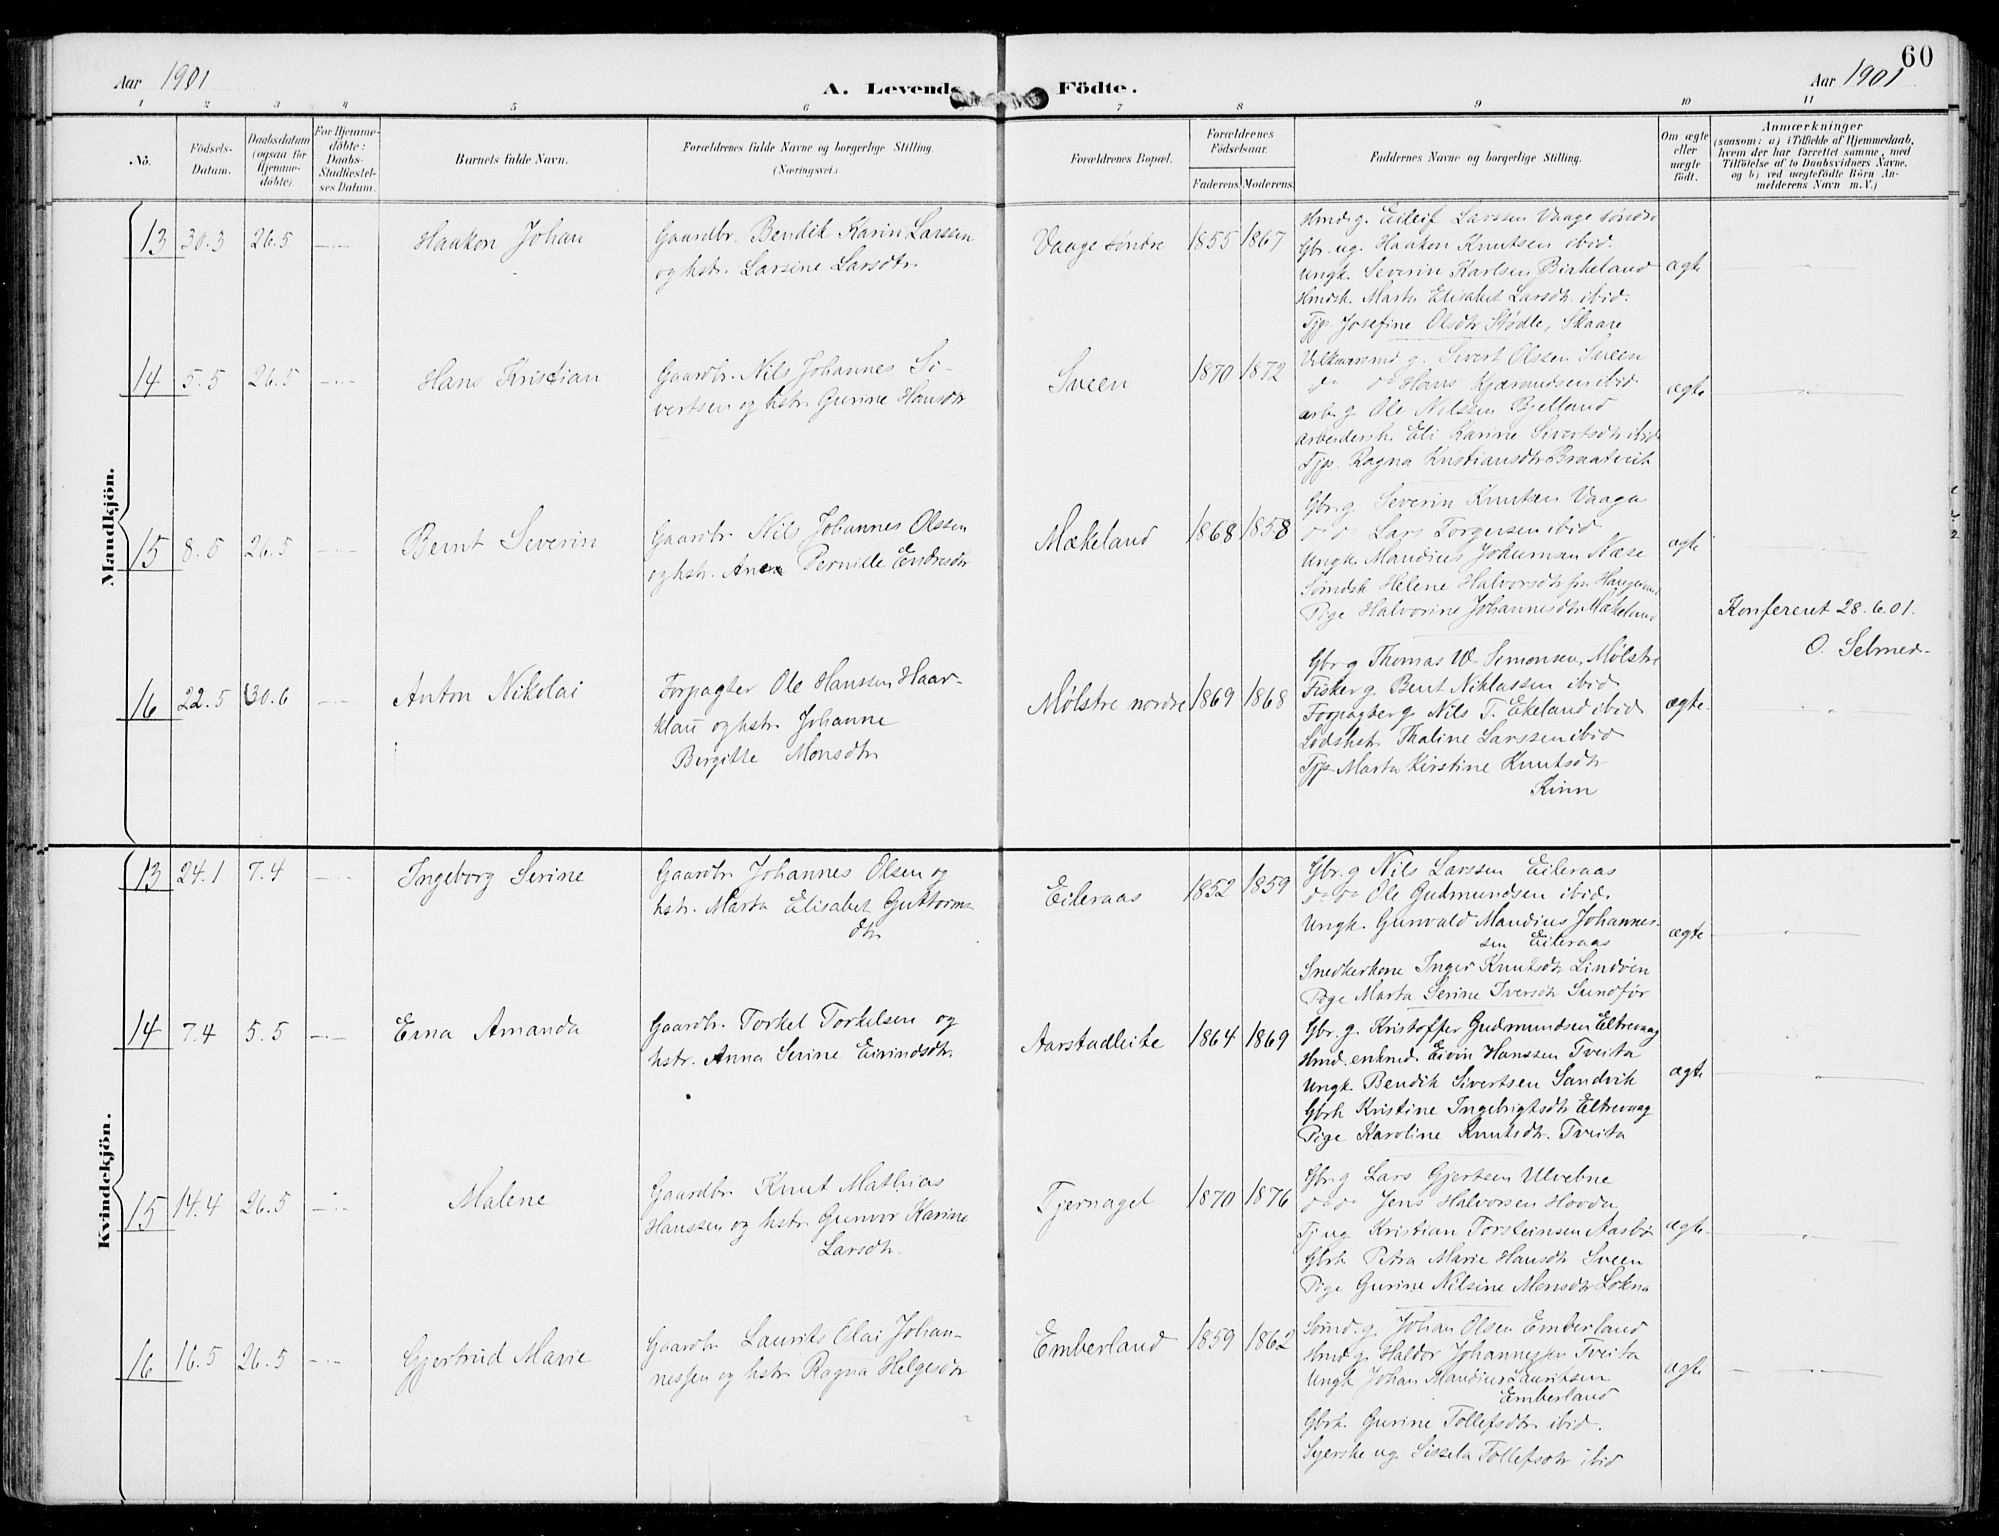 60
Aar 1901
A. Levende Födte.
Aar 1901
1 2 3 4 5 6 7 8 9 10 11
No.
Födsels-Datum.
Daabsdatum (ogsaa for Hjemme-döbte).
For Hjemme-döbte: Daabs-Stadfæstel-ses Datum.
Barnets fulde Navn.
Forældrenes fulde Navne og borgerlige Stilling. (Næringsvei.)
Forældrenes Bopæl.
Forældrenes Födselsaar.
Faderens. Moderens.
Faddernes Navne og borgerlige Stilling.
Om ægte eller uægte födt.
Anmærkninger
(saasom: a) i Tilfælde af Hjemmedaab,
hvem der har forrettet samme, med
Tilföielse af to Daabsvidners Navne.
og b) ved uægtefödte Börn An-
melderens Navn m. V.)
Mandkjön.
13 30.3 26.5 Haakon Johan
Gaardbr. Bendik Karin Larssen
og hstr. Larsine Larsdtr.
Vaage söndre 1855 1867
Hmd. g. Eileif Larssen Vaage söndre
Gbr. ug. Haakon Knutsen ibid.
Ungk. Severin Karlsen Birkeland
Hmdsk. Marta Elisabet Larsdtr. ibid.
Tjp. Josefine Olsdtr Stödle, Skaare
ægte
14 5.5 26.5 Hans Kristian
Gaardbr. Nils Johannes Si-
vertsen og hstr. Gurine Hansdtr
Sveen 1870 1872
g. Sivert Olssen Sveen
do do Hans Kjærandsen ibid
arb. g. Ole Nilssen Bjelland
Arbeidersk. Eli Karine Sivertsdtr ibid
Tjp. Ragna Kristiansdtr Braatveit
ægte
15 8.5 26.5 Bernt Severin
Gaardbr. Nils Johannes Olssen
og hstr. Anna Pernille Endresdtr
Mækeland 1868 1858
Gbr. g. Severin Knutsen Vaage
do do Lars Torgersen ibid
Ungk. Mandius Johannan Næse
Sömdsk Helene Halvorsdtr fra Haugesund
Pige Halvorine Johannesdtr Mækeland
ægte
Konfereret 28.6.01.
O. Selmer.
16 22.5 30.6 Anton Nikolai
Forpagter Ole Hanssen Haav-
klau og hstr. Johanne
Birgitte Monsdtr
Mølstre nordre 1869 1868
Gbr g Thomas W. Simonsen, Mølstre
Fisker g. Bent Niklassen ibid
Forpagter g Nils T. Ekeland ibid
Lodshstr. Thaline Larssen ibid
Tjp. Marta Kirstine Knutsdtr
Kinn
ægte
Kvindekjön.
13 24.1 7.4 Ingeborg Serine
Gaardbr. Johannes Olsen og
hstr. Marta Elisabet Guttorms-
dtr.
Eileraas 1852 1859
Gbr. g Nils Larssen Eileraas
do do Ole Gudmundsen ibid.
Ungk. Gunvald Mandius Johannes-
sen Eileraas
Snedkerkone Inger Knutsdtr Lindøen
Pige Marta Serine Iversdtr Sundfør
ægte
14 7.4 5.5 Erna Amanda
Gaardbr. Torkel Torkelsen og
hstr. Anna Serine Eivindsdtr.
Aarstadleite 1864 1869
Gbr. g. Kristoffer Gudmundsen Eltrevaag
Hmd. enkmd. Eivin Hanssen Tveita
Ungk. Bendik Sivertsen Sandvik
Gbrk Kristine Ingebrigtsdtr Eltrevaag
Pige Karoline Knutsdtr. Tveita
ægte
15 14.4 26.5 Malene
Gaardbr. Knut Mathias
Hanssen og hstr. Gunvor Karine
Larsdtr.
Tjernaget 1870 1876
Gbr. g Lars Gjertsen Ulvebne
do do Jens Halvorsen Hovda
Tj ug Kristian Torsteinsen Aasbø
Gbrk Petra Marie Hansdtr Sveen
Pige Gurine Nilsine Monsdtr Lokna
ægte
16 16.5 26.5 Gjertrud Marie
Gaardbr. Laurits Elai Johan-
nessen og hstr. Ragna Helgesdtr
Emberland 1859 1862
Sömd. g. Johan Olsen Emberland
Hmd g. Haldor Johannessen Tveita
Ungk Johan Mandius Lauritsen
Emberland
Gbrk. Gurine Tollefsdtr ibid.
Syerske ug. Sissela Tollefsdtr ibid
ægte